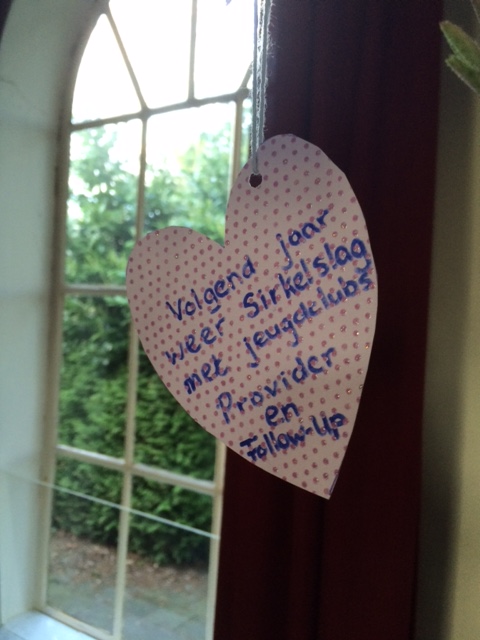 Volgend jaar
weer Sirkelslag
met jeugdclubs
Provider
en
Follow-Up